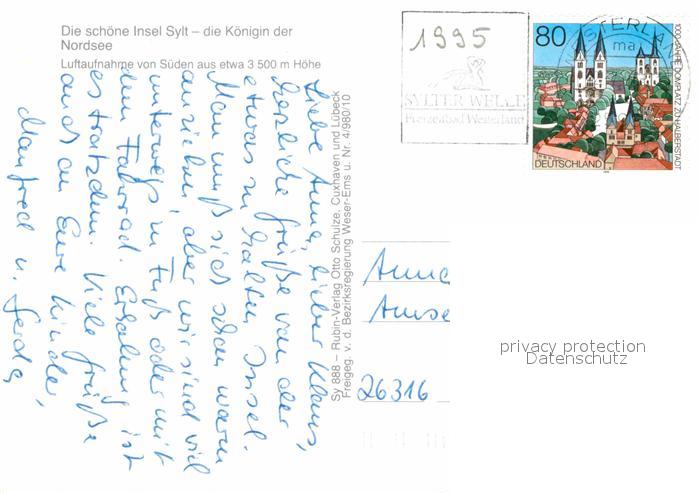 Die schöne Insel Sylt – die Königin der
Nordsee
Luftaufnahme von Süden aus etwa 3 500 m Höhe
Liebe Anne, lieber Klaus,
herzliche Grüße von der
etwas zu kalten Insel.
Man muß sich schon warm
anziehen, aber wir sind viel
unterwegs, zu Fuß oder mit
dem Fahrrad. Erholung ist
es trotzdem. Viele Grüße
auch an Eure Kinder,
Manfred u. Gerda
Sy 888 – Rubin-Verlag Otto Schulze, Cuxhaven und Lübeck
Freigeg. v. d. Bezirksregierung Weser-Ems u. Nr. 4/980/10
1995
SYLTER WELLE
Freizeitbad Westerland
WESTERLAND
ma
80
DEUTSCHLAND
1000 JAHRE DOMPLATZ ZU HALBERSTADT
Anne
26316
privacy protection
Datenschutz